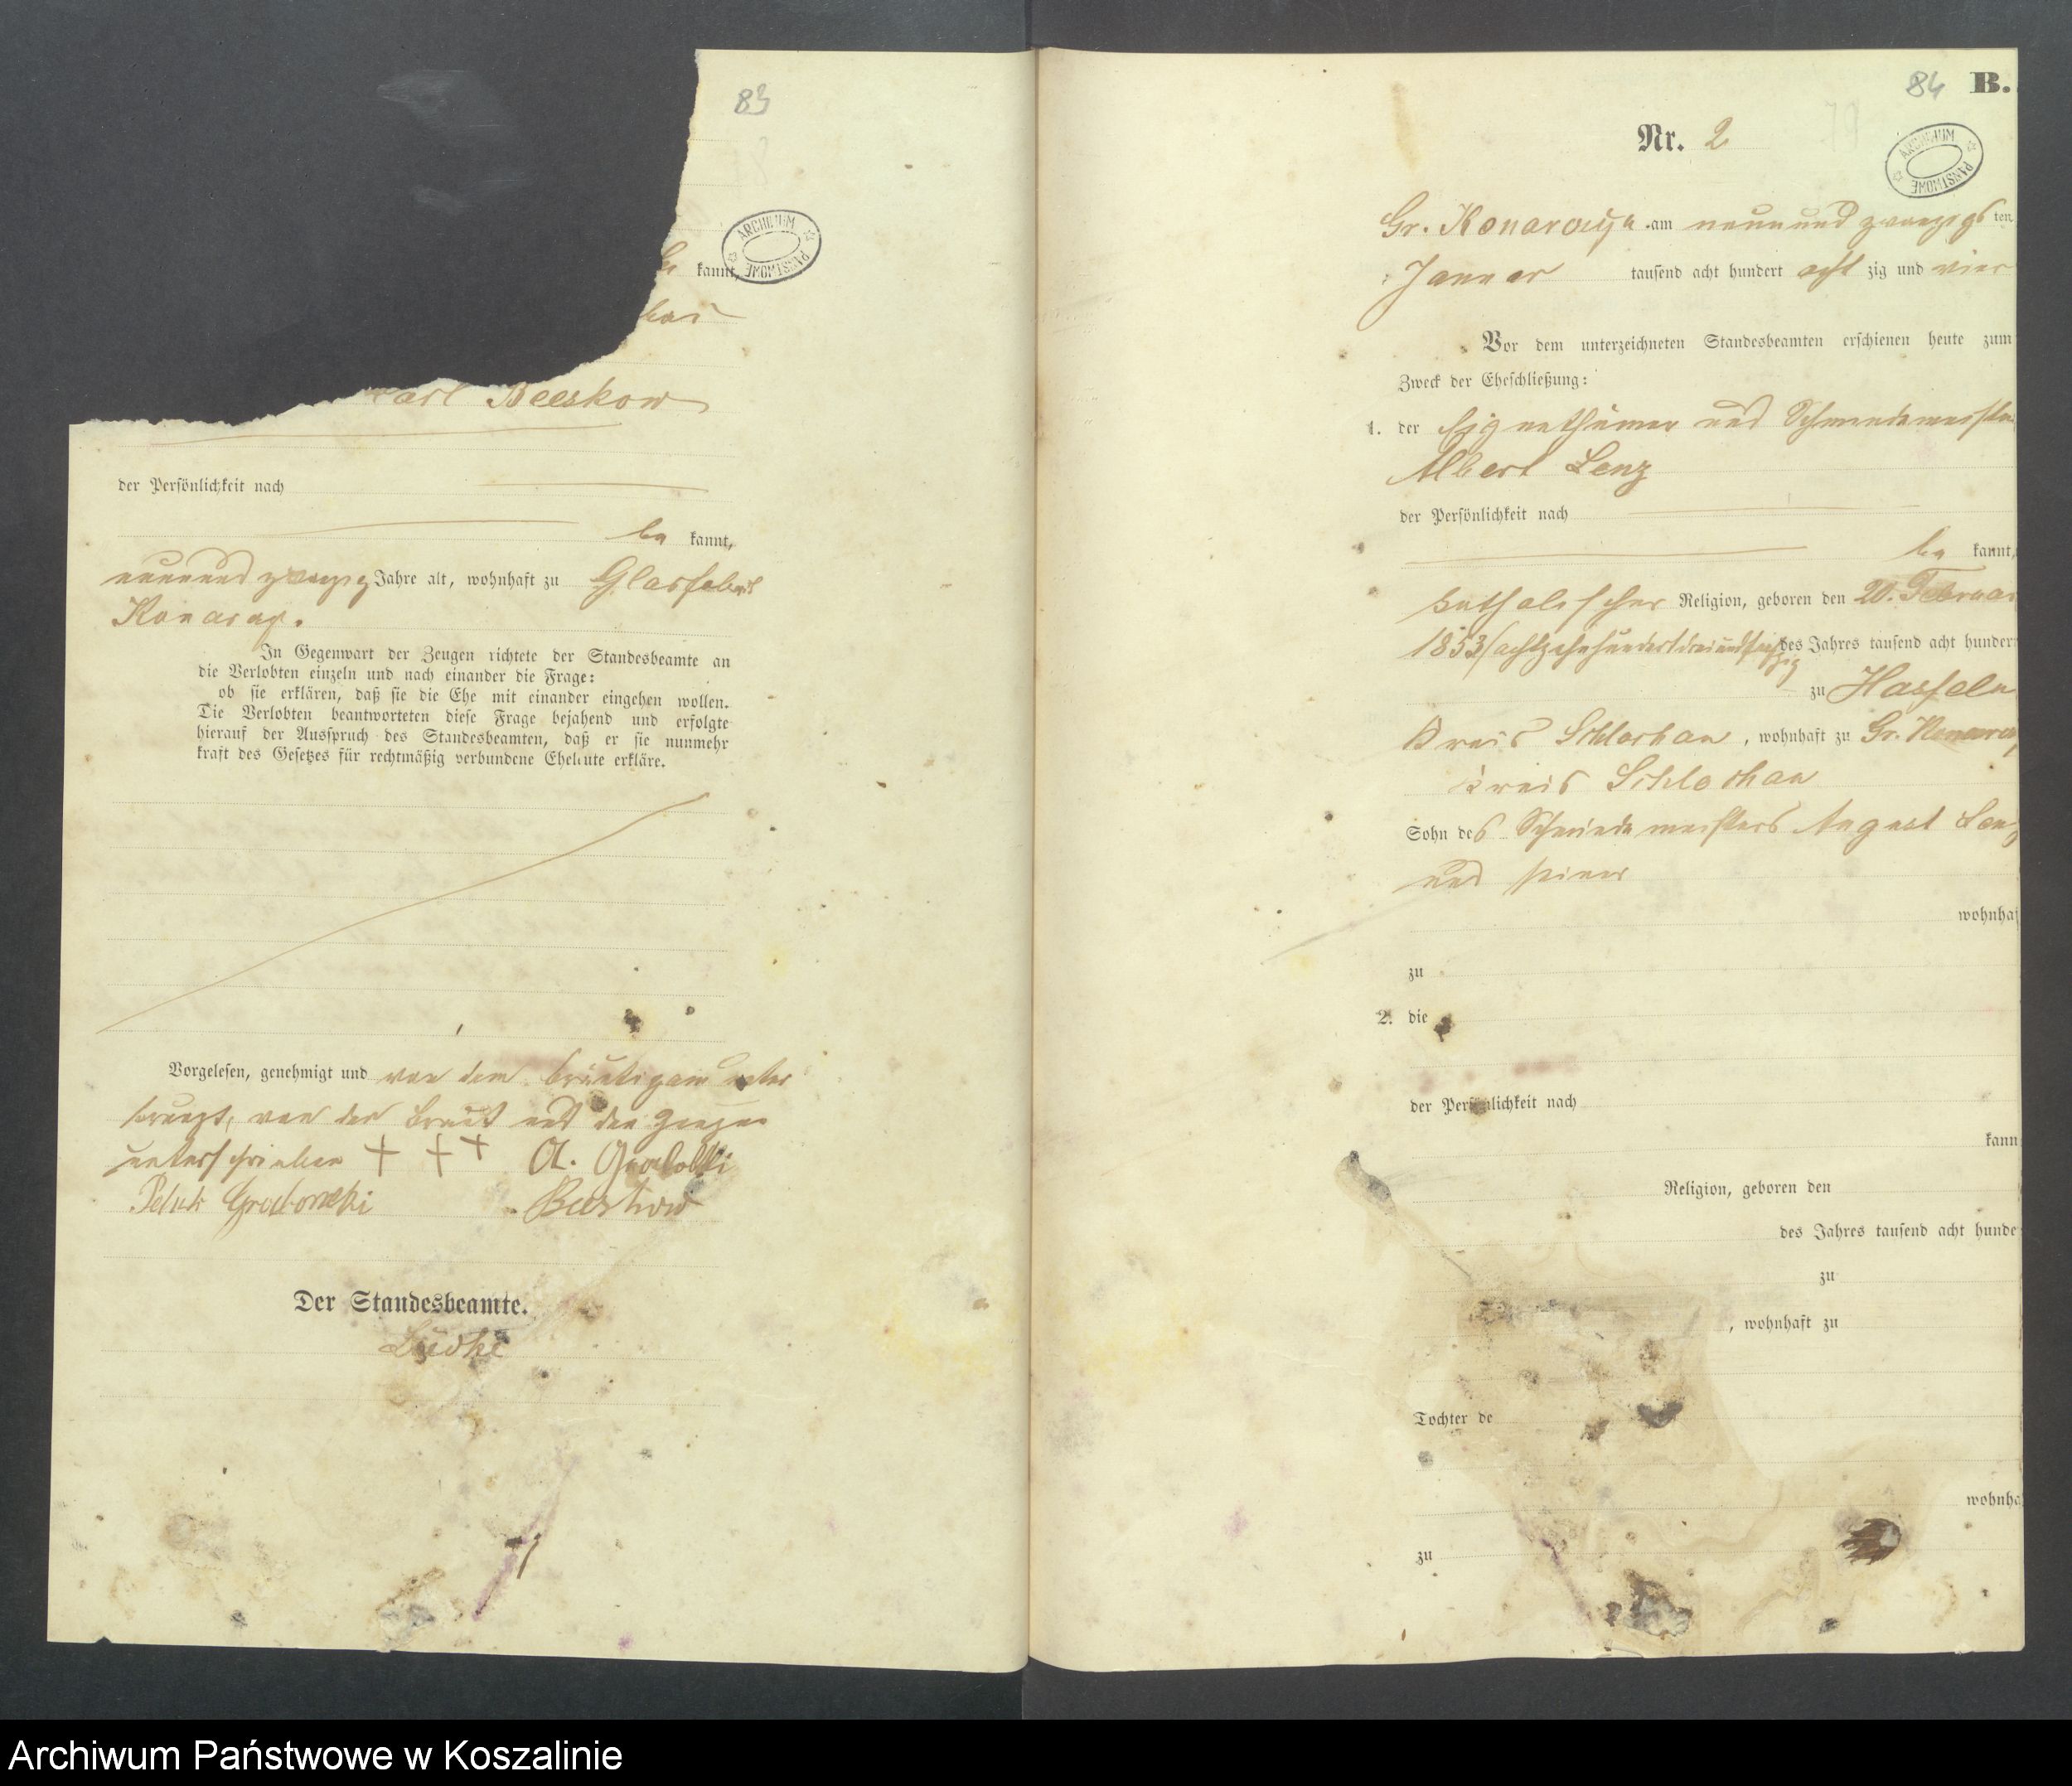 83
ARCHIWUM PAŃSTWOWE
kannt,
Karl Beeskow
der Persönlichkeit nach
be kannt,
neunundzwanzig Jahre alt, wohnhaft zu Glasfabrik
Konarzyn.
In Gegenwart der Zeugen richtete der Standesbeamte an
die Verlobten einzeln und nach einander die Frage:
ob sie erklären, daß sie die Ehe mit einander eingehen wollen.
Die Verlobten beantworteten diese Frage bejahend und erfolgte
hierauf der Ausspruch des Standesbeamten, daß er sie nunmehr
kraft des Gesetzes für rechtmäßig verbundene Eheleute erkläre.
Vorgelesen, genehmigt und von dem Bräutigam unter
kreuzt, von der Braut und den Zeugen
unterschrieben + + + A. Grabowski
Beeskow
Der Standesbeamte.
Lüdke
84 B.
Nr. 2
ARCHIWUM PAŃSTWOWE
Gr. Konarczyn am neunundzwanzigs ten
Januar tausend acht hundert acht zig und vier
Vor dem unterzeichneten Standesbeamten erschienen heute zum
Zweck der Eheschließung:
1. der Eigenthümer und Schmiedemeister
Albert Lenz
der Persönlichkeit nach
be kannt,
katholischer Religion, geboren den 20. Februar
1853 (achtzehnhundertdreiundfünfzig des Jahres tausend acht hundert
zu Hasseln
Kreis Schlochau, wohnhaft zu Gr. Konarczyn
Kreis Schlochau
Sohn des Schmiedemeisters August Lenz
und seiner
wohnhaf
zu
2. die
der Persönlichkeit nach
kann
Religion, geboren den
des Jahres tausend acht hunde
zu
, wohnhaft zu
Tochter de
wohnha
zu
Archiwum Państwowe w Koszalinie